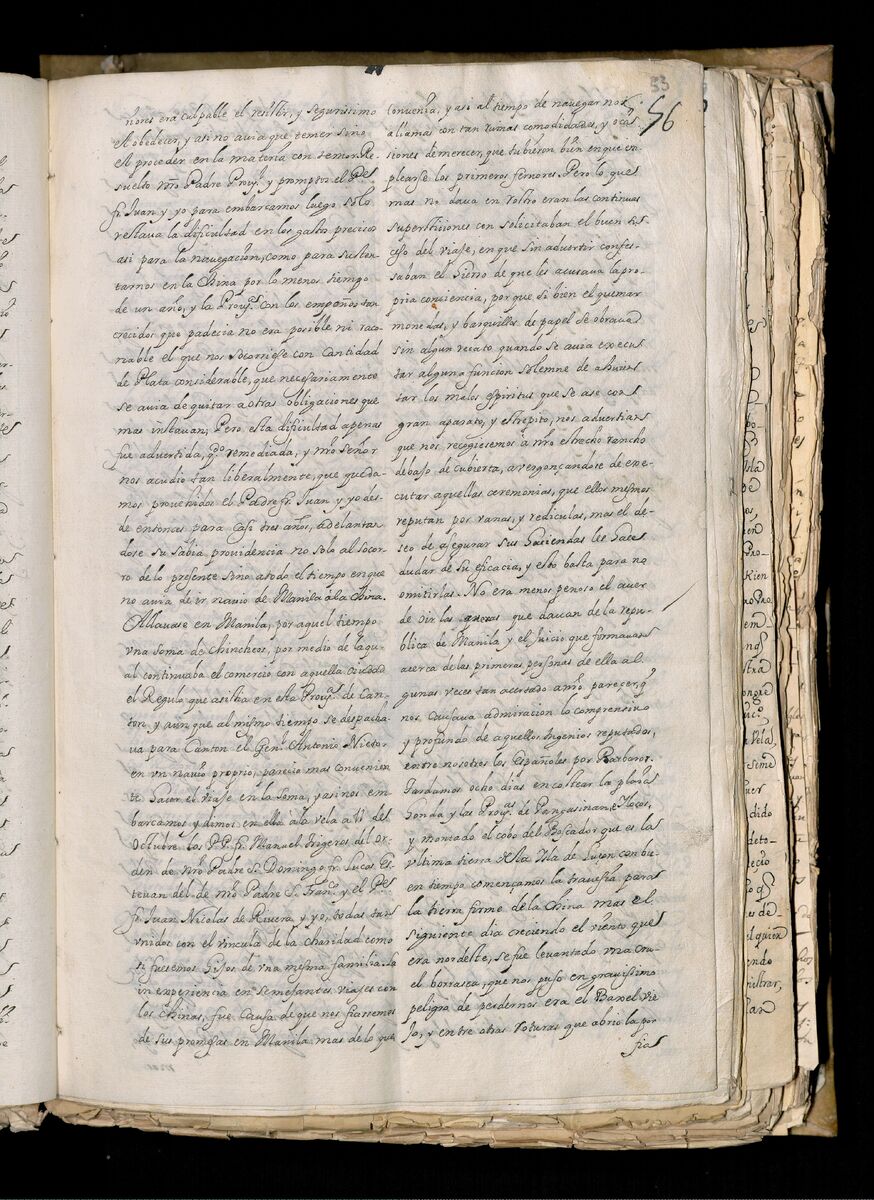 53
56
ñores era culpable el resistir, y segurissimo
el obedecer, y asi no avia que temer sino
el proceder en la materia con temor. Re
suelto nr̃o Padre Provl. y promptos el Pe.
fr. Juan y yo para embarcarnos luego solo
restava la dificultad en los gastos precisos
asi para la navegacion, como para susten
tarnos en la China por lo menos tiempo
de un año, y la Prova. con los empeños tan
crecidos que padecia no era posible ni raco
nable el que nos socorriesse con cantidad
de Plata considerable, que necesariamente
se avia de quitar a otras obligaciones que
mas instavan; Pero esta dificultad apenas
fue advertida, qdo. remediada, y nr̃o Señor
nos acudio tan liberalmente, que queda-
mos provehidos el Padre fr. Juan y yo des-
de entonces para casi tres años, adelantan
dose su sabia providencia no solo al socor
ro de lo presente sino a todo el tiempo en que
no avia de ir navio de Manila a la China.
Allavase en Manila, por aquel tiempo
vna soma de Chincheos, por medio de la qu-
al continuaba el comercio con aquella ciudad
el Regulo que asistia en esta Prova. de Can-
ton, y aun que al mismo tiempo se despacha-
va para Canton el Genl. Antonio Nieto
en vn navio proprio, parecio mas convenien
te hacer el viaje en la soma, y asi nos em
barcamos y dimos en ella a la vela a 11 del
Octubre los PP. fr. Manuel Trigeros del Or-
den de nr̃o Padre S. Domingo fr. Lucas Es
tevan del de nr̃o Padre S. Franco. y el Pe.
fr. Juan Nicolas de Rivera y yo, todos tan
vnidos con el vinculo de la charidad como
si fuesemos hijos de vna misma familia. La
inexperiencia en semejantes viajes con
los Chinas, fue causa de que nos fiasemos
de sus promesas en Manila mas de lo que
convenia, y asi al tiempo de navegar nos
aliamos con tan sumas comodidades, y oca
siones de merecer, que tubieron bien en que em
plearse los primeros fervores. Pero lo que
mas nos dava en rostro eran las continuas
supersticiones con solicitaban el buen su
ceso del viaje, en que sin advertir confes-
saban el hierro de que les acusava la pro-
pria conciencia, porque si bien el quemar
monedas, y barquillos de papel se obrava
sin algun recato quando se avia execu
tar alguna funcion solemne de ahuien
tar los malos espiritus que se ase con
gran aparato, y estrepito, nos advertian
que nos recogiesemos a nr̃o estrecho rancho
debajo de cubierta, avergonçandose de exe-
cutar aquellas ceremonias, que ellos mismos
reputan por vanas, y rediculas, mas el de-
seo de asegurar sus haciendas les hace
dudar de su eficacia, y esto basta para no
omitirlas. No era menos penoso el aver
de oir las nuevas que davan de la repu-
blica de Manila y el juicio que formavan
acerca de las primeras personas de ella al
gunas veces tan acertado a nr̃o parecer, q̃
nos causava admiracion lo comprensivo
y profundo de aquellos ingenios reputados,
entre nosotros los Españoles por Barbaros.
Tardamos ocho dias en costear la playa
honda y las Provas. de Pangasinan, e Ylocos,
y montado el cabo del Bojeador que es la
vltima tierra de la Ysla de Luzon con bu-
en tiempo comenzamos la travesia para
la tierra firme de la China mas el
siguiente dia creciendo el viento que
era nordeste, se fue levantado vna cru-
el borrasca, que nos puso en gravissimo
peligro de perdernos era el Baxel vie
jo, y entre otras roturas que abrio la por
fia